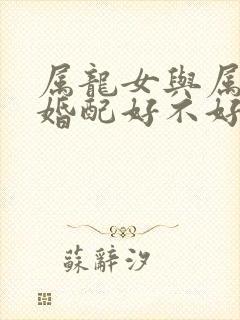 属龍女與属
婚配好不好
蘇辭汐